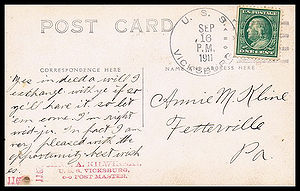 POST CARD
U. S. S.
SEP
16
P.M.
1911
VICKSB
CORRESPONDENCE HERE
NAME AND ADDRESS HERE
Yes indeed a will I
exchange with ye if so
ye'll have it, so let
em come I'm right
with yer. In fact I am
very pleased with the
opportunity best wish
es.
Annie M. Kline
Fetterville
Pa.
U. S. S. VICKSBURG,
POST MASTER.